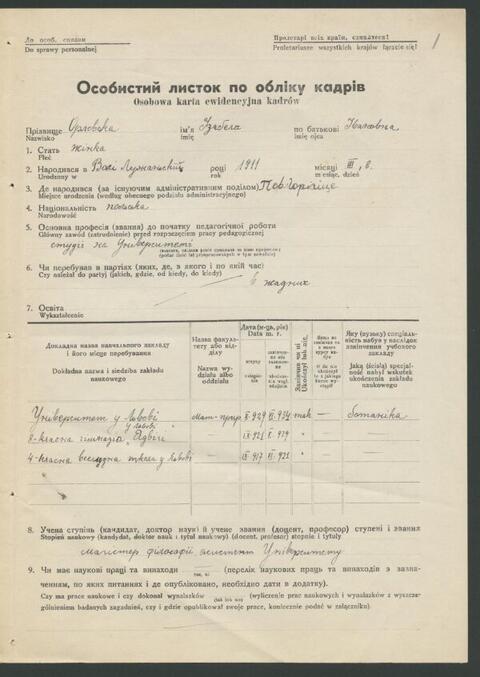 До особ. справи
Do sprawy personalnej
Пролетарі всіх країн, єднайтеся!
Proletariusze wszystkich krajów łączcie się!
1
Особистий листок по обліку кадрів
Osobowa karta ewidencyjna kadrów
Прізвище Орловска ім'я Ізабела по батькові
Nazwisko imię imię ojca
1. Стать жінка
Płeć
2. Народився в році 1911 місяці III, 6.
Urodzony w rok miesiąc, dzień
3. Де народився (за існуючим адміністративним поділом)
Miejsce urodzenia (według obecnego podziału administracyjnego)
4. Національність полька
Narodowość
5. Основна професія (звання) до початку педагогічної роботи
Główny zawód (zatrudnienie) przed rozpoczęciem pracy pedagogicznej
студії на Університеті
6. Чи перебував в партіях (яких, де, з якого і по якій час)
Czy należał do partyj (jakich, gdzie, od kiedy, do kiedy)
в жадних
7. Освіта
Wykształcenie
Докладна назва навчального закладу і його місце перебування
Dokładna nazwa i siedziba zakładu naukowego
Назва факультету або відділу
Nazwa wydziału albo oddziału
Дата (м-ця, рік)
Data m. r.
Закінчив чи ні
Ukończył lub nie
Яку (вузьку) спеціальність набув у наслідок закінчення учбового закладу
Jaką (ścisłą) specjalność nabył wskutek ukończenia zakładu naukowego
Університет у Львові Мат-прир X 929 VI 934 так — ботаніка
8-класна гімназія у Львові IX 921 VI 929 " —
4-класна школа у Львові — IX 917 VI 921 " —
8. Учена ступінь (кандидат, доктор наук) й учене звання (доцент, професор) ступені і звання
Stopień naukowy (kandydat, doktor nauk i tytuł naukowy) (docent, profesor) stopnie i tytuły
магістер філософії асистент Університету
9. Чи має наукові праці та винаходи так, ні (перелік наукових праць та винаходів з зазначенням, по яких питаннях і де опубліковано, необхідно дати в додатку).
Czy ma prace naukowe i czy dokonał wynalazków (tak lub nie) (wyliczenie prac naukowych i wynalazków z wyszczególnieniem badanych zagadnień, czy i gdzie opublikował swoje prace, koniecznie podać w załączniku).